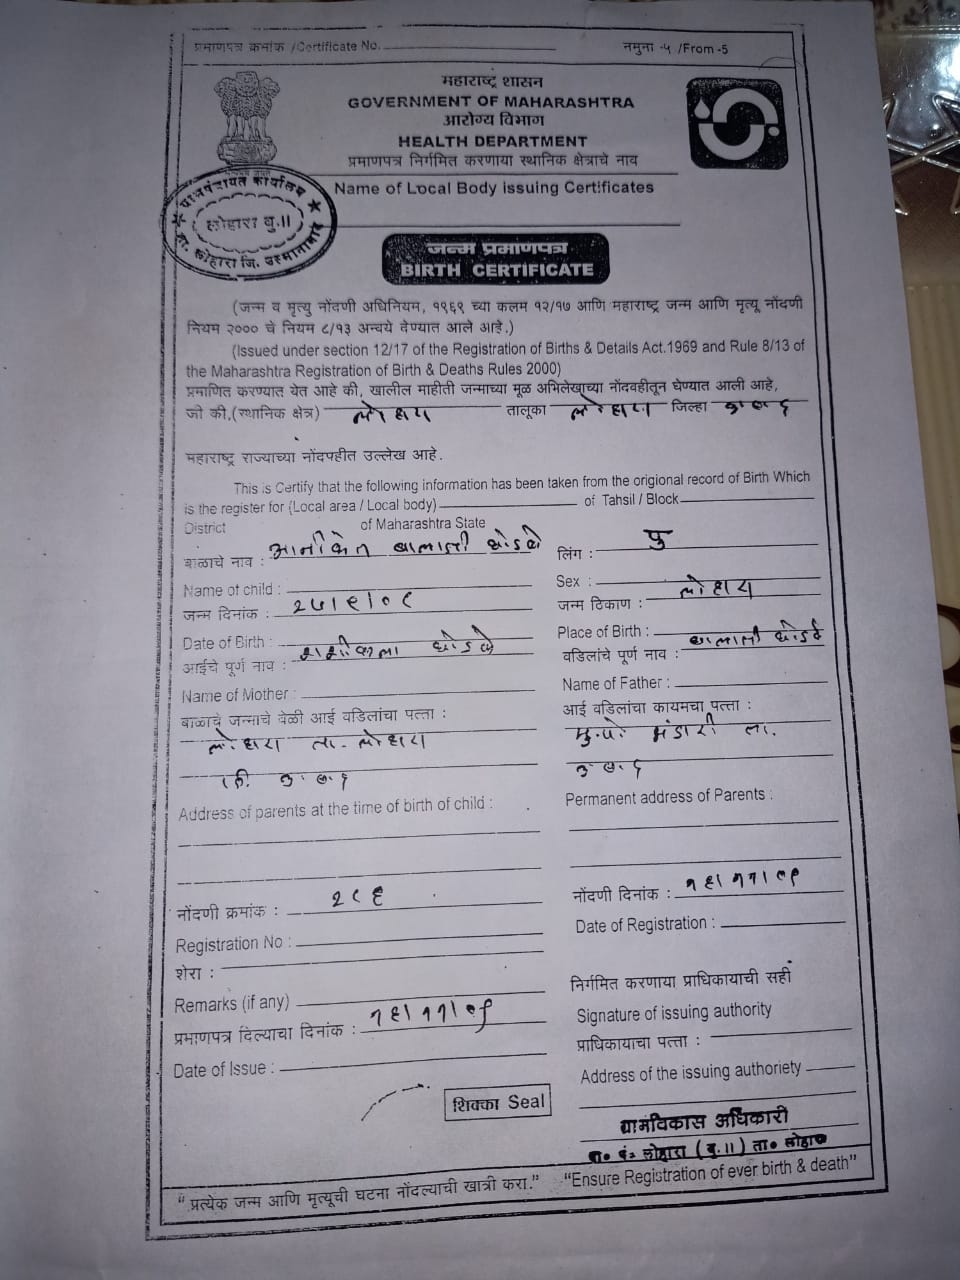 प्रमाणपत्र क्रमांक /Certificate No.
नमुना -५ /From -5
महाराष्ट्र शासन
GOVERNMENT OF MAHARASHTRA
आरोग्य विभाग
HEALTH DEPARTMENT
प्रमाणपत्र निर्गमित करणाया स्थानिक क्षेत्राचे नाव
Name of Local Body issuing Certificates
लोहारा बु.॥
ता. लोहारा जि. उस्मानाबाद
जन्म प्रमाणपत्र
BIRTH CERTIFICATE
(जन्म व मृत्यु नोंदणी अधिनियम, १९६९ च्या कलम १२/१७ आणि महाराष्ट्र जन्म आणि मृत्यू नोंदणी
नियम २००० चे नियम ८/१३ अन्वये देण्यात आले आहे.)
(Issued under section 12/17 of the Registration of Births & Details Act.1969 and Rule 8/13 of
the Maharashtra Registration of Birth & Deaths Rules 2000)
प्रमाणित करण्यात येत आहे की, खालील माहीती जन्माच्या मूळ अभिलेखाच्या नोंदवहीतून घेण्यात आली आहे,
जी की,(स्थानिक क्षेत्र) लोहारा तालूका लोहारा जिल्हा
महाराष्ट्र राज्याच्या नोंदपहीत उल्लेख आहे.
This is Certify that the following information has been taken from the origional record of Birth Which
is the register for (Local area / Local body) of Tahsil / Block
District of Maharashtra State
बाळाचे नाव : लिंग : पु
Name of child : Sex :
जन्म दिनांक : जन्म ठिकाण : लोहारा
Date of Birth : Place of Birth :
आईचे पूर्ण नाव : वडिलांचे पूर्ण नाव :
Name of Mother : Name of Father :
बाळाचे जन्माचे वेळी आई वडिलांचा पत्ता : आई वडिलांचा कायमचा पत्ता :
लोहारा ता. लोहारा मु.पो.
Address of parents at the time of birth of child : Permanent address of Parents :
नोंदणी क्रमांक : २८६ नोंदणी दिनांक :
Registration No : Date of Registration :
शेरा :
Remarks (if any) निर्गमित करणाया प्राधिकायाची सही
प्रमाणपत्र दिल्याचा दिनांक : Signature of issuing authority
प्राधिकायाचा पत्ता :
Date of Issue : Address of the issuing authoriety
शिक्का Seal
ग्रामविकास अधिकारी
लोहारा (बु.॥) ता॰
“ प्रत्येक जन्म आणि मृत्यूची घटना नोंदल्याची खात्री करा.” “Ensure Registration of ever birth & death”